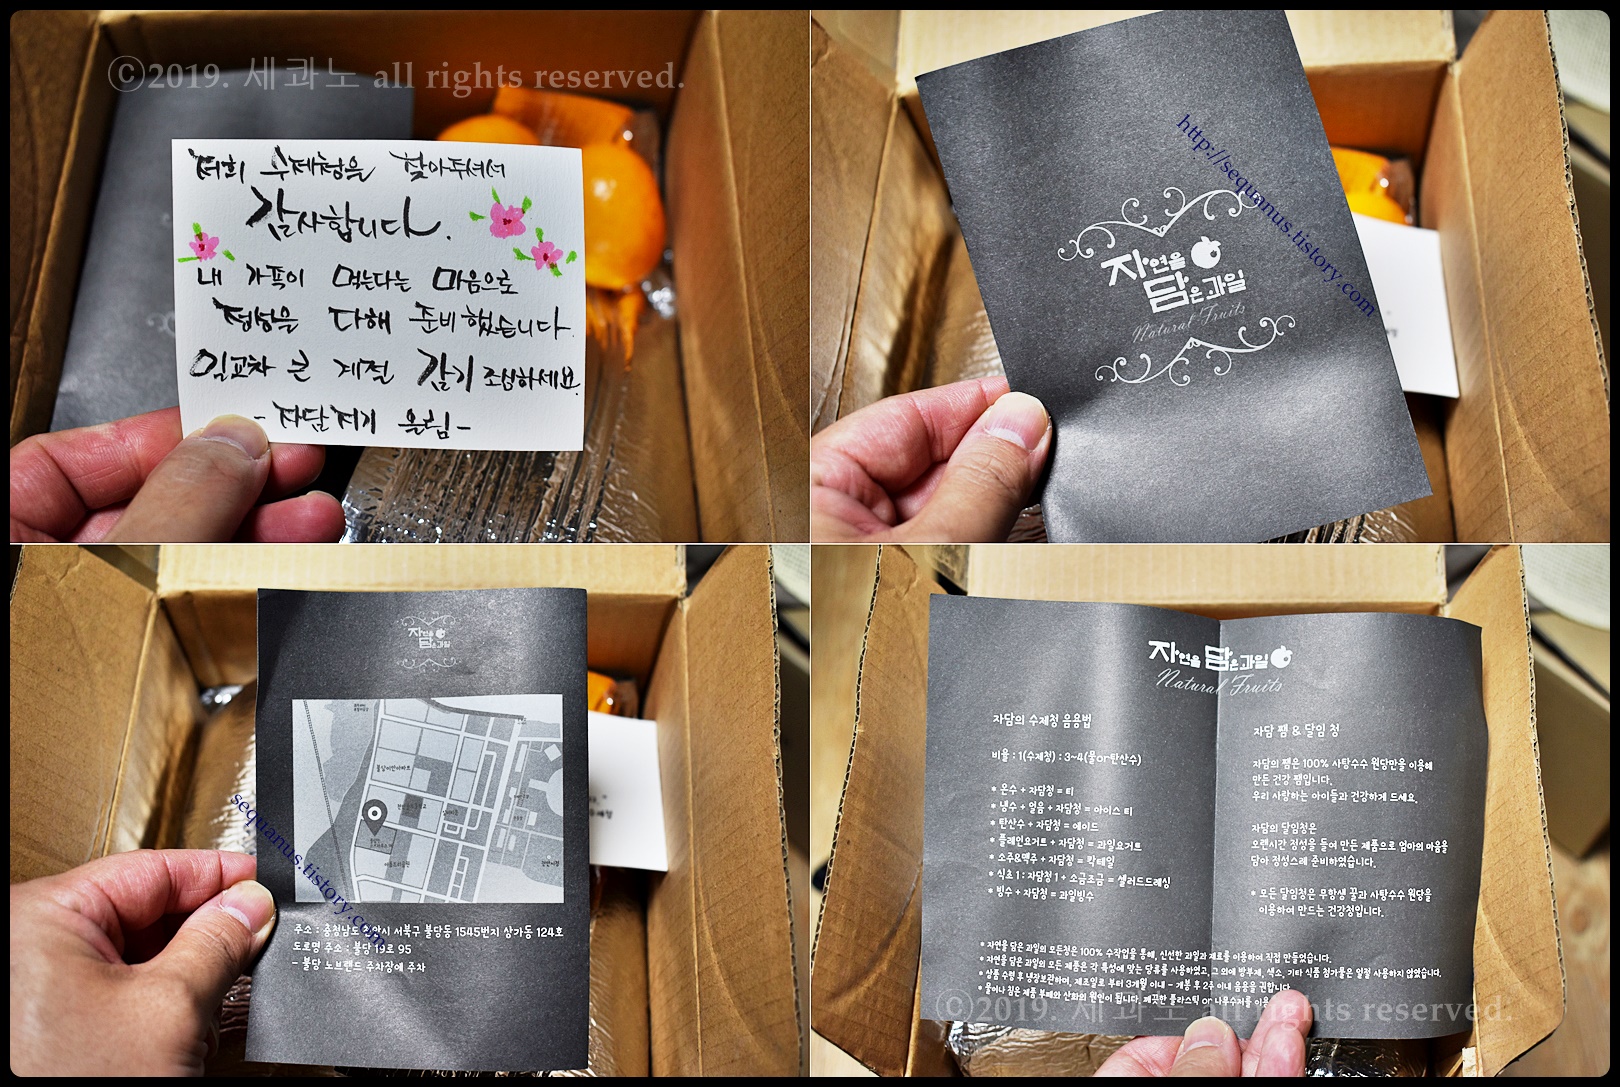 ⓒ2019. 세콰노 all rights reserved.
저희 수제청을 찾아주셔서
감사합니다.
내 가족이 먹는다는 마음으로
정성을 다해 준비했습니다.
일교차 큰 계절 감기 조심하세요.
- 자담지기 올림 -
http://sequanus.tistory.com
자연을
담은과일
Natural Fruits
자연을
담은과일
불당
주소 : 충청남도 천안시 서북구 불당동 1545번지 상가동 124호
도로명 주소 : 불당 19로 95
- 불당 노브랜드 주차장에 주차
sequanus.tistory.com
자연을 담은과일
Natural Fruits
자담의 수제청 음용법
비율 : 1(수제청) : 3~4(물or탄산수)
* 온수 + 자담청 = 티
* 냉수 + 얼음 + 자담청 = 아이스 티
* 탄산수 + 자담청 = 에이드
* 플레인요거트 + 자담청 = 과일요거트
* 소주&맥주 + 자담청 = 칵테일
* 식초 1 : 자담청 1 + 소금조금 = 샐러드드레싱
* 빙수 + 자담청 = 과일빙수
자담 쨈 & 달임 청
자담의 쨈은 100% 사탕수수 원당만을 이용해
만든 건강 쨈입니다.
우리 사랑하는 아이들과 건강하게 드세요.
자담의 달임청은
오랜시간 정성을 들여 만든 제품으로 엄마의 마음을
담아 정성스레 준비하였습니다.
* 모든 달임청은 무항생 꿀과 사탕수수 원당을
이용하여 만드는 건강청입니다.
* 자연을 담은 과일의 모든청은 100% 수작업을 통해, 신선한 과일과 재료를 이용하여 직접 만들었습니다.
* 자연을 담은 과일의 모든 제품은 각 특성에 맞는 당류를 사용하였고, 그 외에 방부제, 색소, 기타 식품 첨가물은 일절 사용하지 않았습니다.
* 상품 수령 후 냉장보관하며, 제조일로 부터 3개월 이내 - 개봉 후 2주 이내 음용을 권합니다.
* 물이나 침은 제품 부패와 산화의 원인이 됩니다. 깨끗한 플라스틱 or 나무수저를 이용
ⓒ2019. 세콰노 all rights reserved.